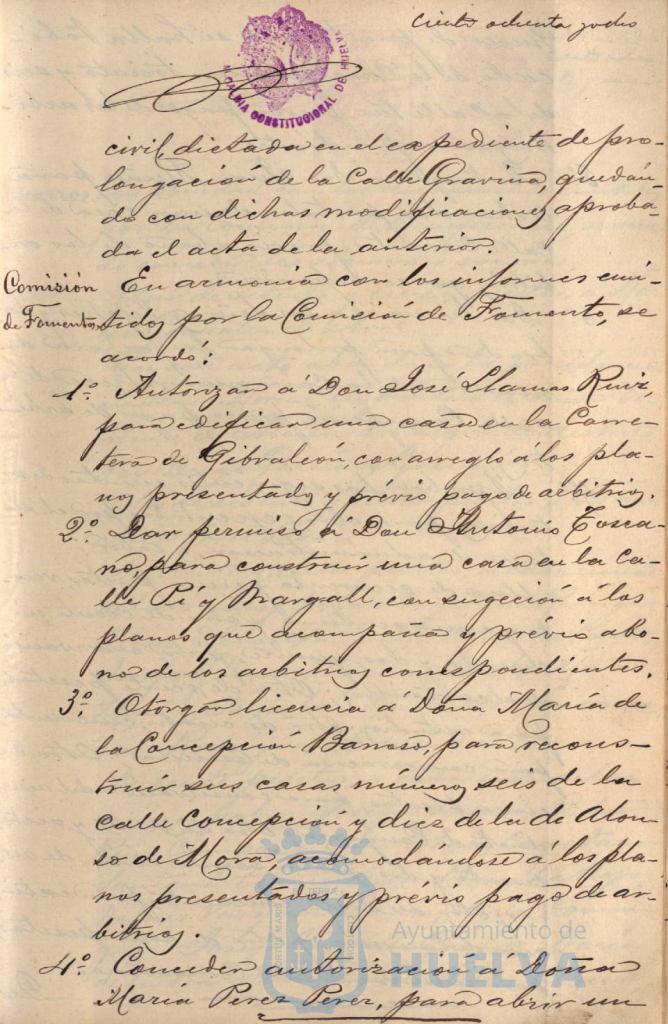 Ciento ochenta y dos
ALCALDIA CONSTITUCIONAL DE HUELVA
civil, dictada en el expediente de pro-
longación de la Calle Gravina, quedán-
do con dichas modificaciones aproba-
da el acta de la anterior.
Comisión de Fomento.
En armonia con los informes emi-
tidos por la Comisión de Fomento, se
acordó:
1º. Autorizar á Don José Llamas Ruiz,
para edificar una casa en la Carre-
tera de Gibraleón, con arreglo á los pla-
nos presentados y prévio pago de arbitrios.
2º. Dar permiso á Don Antonio Tosca-
no, para construir una casa en la Ca-
lle Pí y Margall, con sugeción á los
planos que acompaña y prévio abo-
no de los arbitrios correspondientes.
3º. Otorgar licencia á Doña María de
la Concepción Barroso, para recons-
truir sus casas números seis de la
calle Concepción y diez de la de Alon-
so de Mora, acomodándose á los pla-
nos presentados y prévio pago de ar-
bitrios.
4º. Conceder autorización á Doña
María Perez Perez, para abrir un
Ayuntamiento de
HUELVA